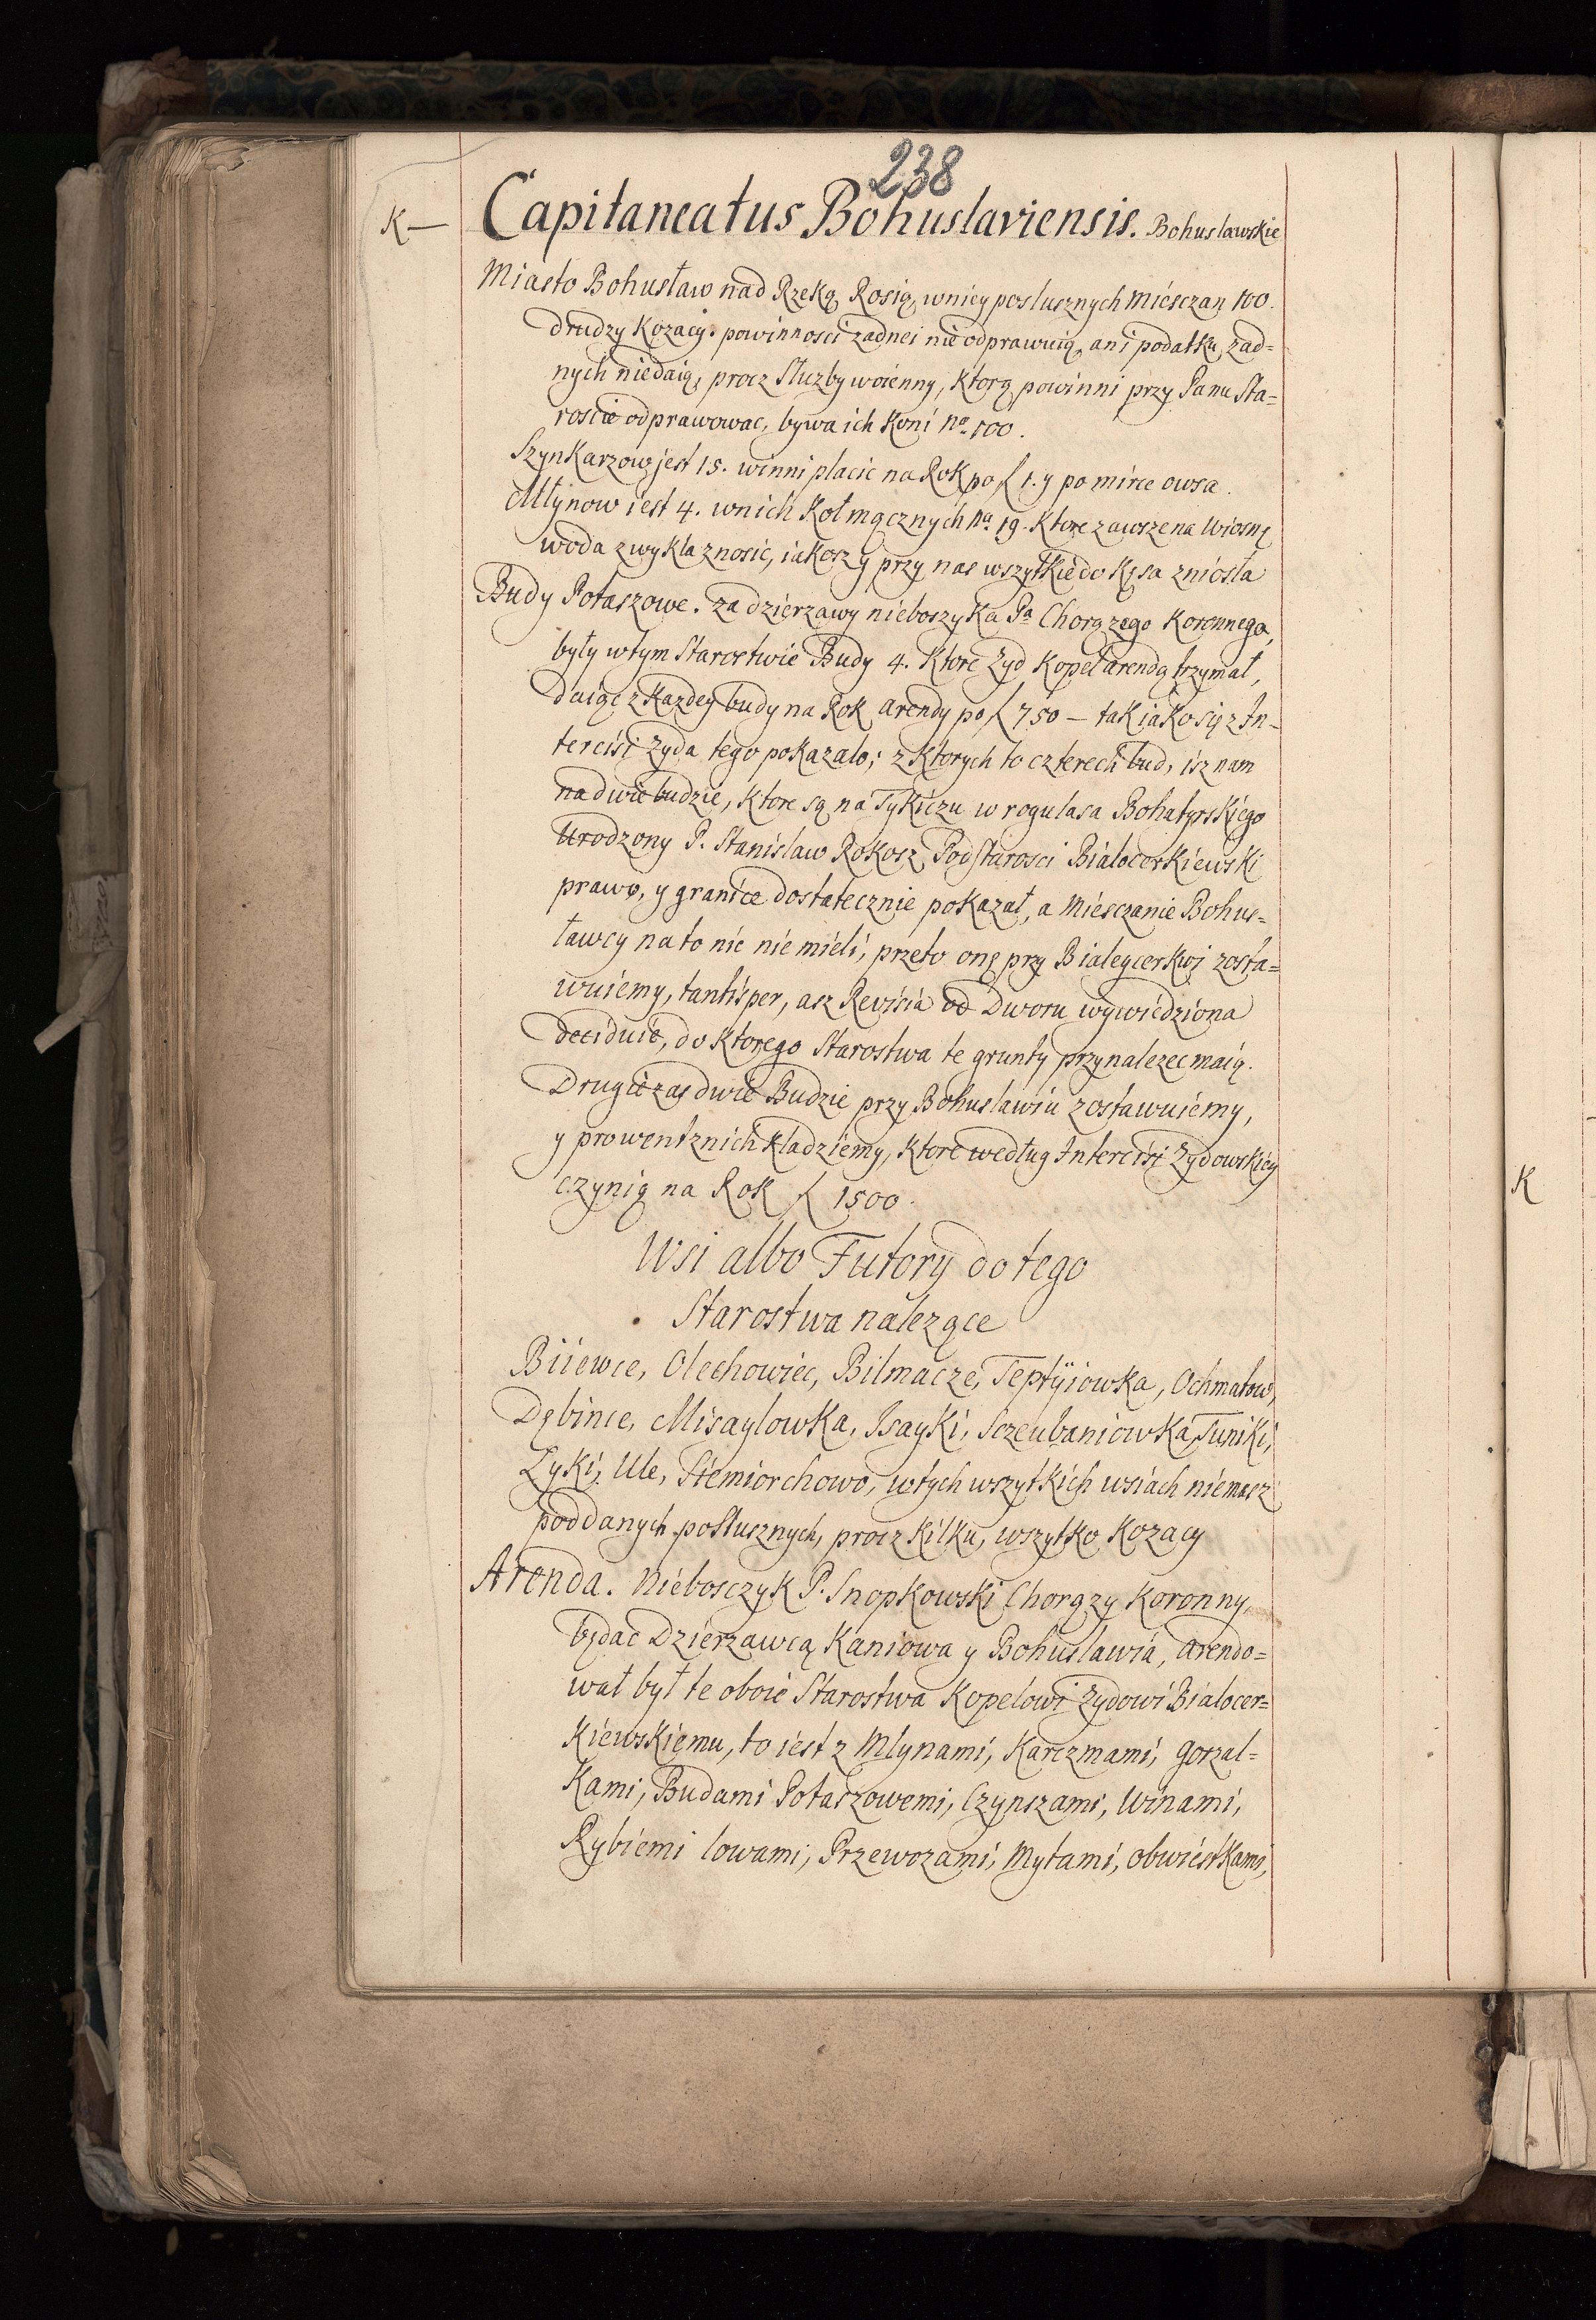 238
K— Capitaneatus Bohuslaviensis. Bohuslawskie
Miasto Bohusław nad Rzeką Rosią, wniey poslusznych Miesczan 100.
drudzy Kozacy. powinnosci zadnei nie odprawuią, ani podatku zad=
nych niedaią, procz Służby woienny, ktorą powinni przy Panu Sta=
roscie odprawowac, bywa ich Koni No. 100.
Szynkarzow jest 15. winni placic na Rok po f 1. y po mirce owsa.
Młynow iest 4. wnich Koł mącznych No. 19. Ktore zawsze na Wiosnę
woda zwykla znosic, iakosz y przy nas wszytkie do kęsa zniosła
Budy Potaszowe. za dzierzawy nieboszyka Pa Chorązego Koronnego,
były wtym Starostwie Budy 4. Ktore Zyd Kopel arendą trzymał,
daiąc z Kazdey budy na Rok arendy po f 750 — tak iako się z In-
tercisi Zyda tego pokazalo; z Ktorych to czterech bud, isz nam
na dwie budzie, Ktore są na Tykiczu w rogu lasa Bohatyrskiego
Urodzony P. Stanislaw Rokosz Podstarosci Bialocerkiewski
prawo, y granice dostatecznie pokazał, a Miesczanie Bohus=
ławcy na to nic nie mieli, przeto onę przy Bialeycerkwi zosta=
wuiemy, tantisper, asz Revisia od Dworu wywiedziona
deciduie, do Ktorego Starostwa te grunty przynalezec maią.
Drugie zas dwie Budzie przy Bohuslawiu zostawuiemy,
y prowent znich kladziemy, Ktore według Intercisi Zydowskiey
czynią na Rok f 1500.
Wsi albo Futory do tego
Starostwa nalezące
Biiewce, Olechowiec, Bilmacze, Teptyiowka, Ochmatow,
Dębince, Misaylowka, Isayki, Sczeubaniowka, Tuniki,
Łyki, Ule, Siemiorchowo, wtych wszytkich wsiach niemasz
poddanych posłusznych, procz Kilku, wszytko Kozacy
Arenda. Niebosczyk P. Snopkowski Chorązy Koronny,
będąc Dzierzawcą Kaniowa y Bohuslawia, arendo=
wał był te oboie Starostwa Kopelowi Zydowi Bialocer=
kiewskiemu, to iest z Mlynami, Karczmami, gorzal=
kami, Budami Potaszowemi, Czynszami, Winami,
Rybiemi lowami, Przewozami, Mytami, obwiestkami,
K